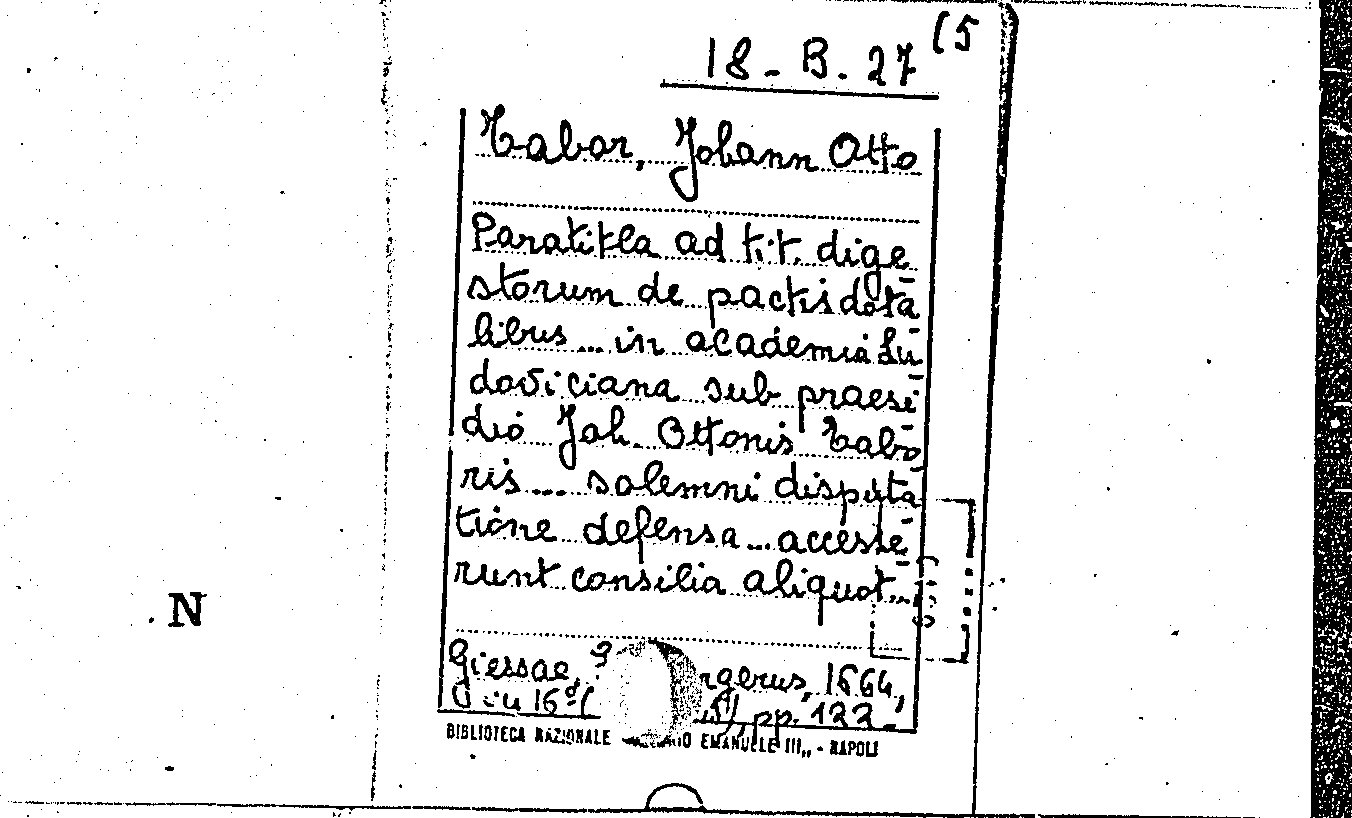 18 - B. 27 (5
Tabor, Johann Otto
Paratitla ad tit. dige
storum de pactis dota
libus ... in academia Lu
doviciana sub praesi
dio Joh. Ottonis Tabo
ris ... solemni disputa
tione defensa ... accesse
runt consilia aliquot ...
N
Giessae, 1664,
in 16º pp. 122 -
BIBLIOTECA NAZIONALE EMANUELE III,, - NAPOLI